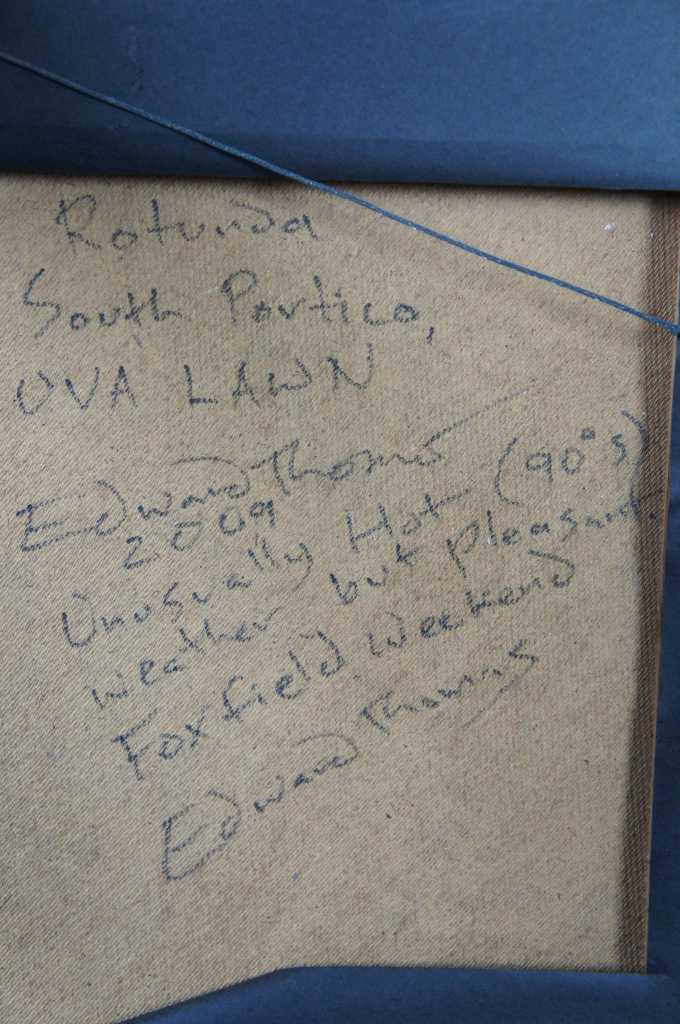 Rotunda
South Portico,
UVA LAWN
Edward Thomas
2009
Unusually Hot (90°s)
weather but pleasant.
Foxfield Weekend
Edward Thomas